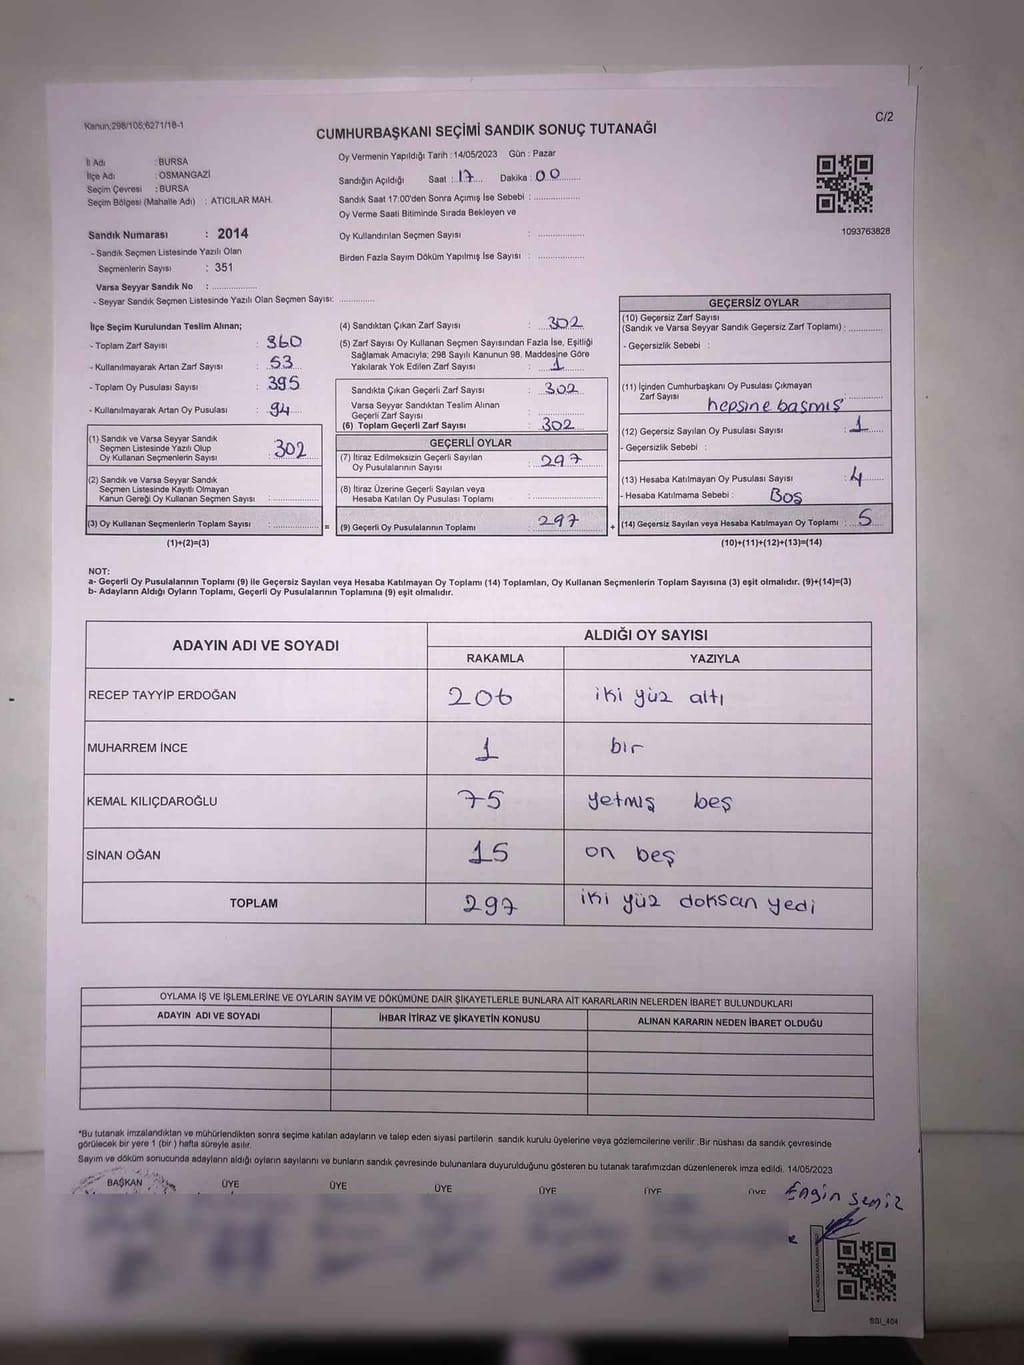 Kanun:298/105;6271/18-1
C/2
CUMHURBAŞKANI SEÇİMİ SANDIK SONUÇ TUTANAĞI
İl Adı : BURSA
İlçe Adı : OSMANGAZİ
Seçim Çevresi : BURSA
Seçim Bölgesi (Mahalle Adı) : ATICILAR MAH.
Sandık Numarası : 2014
- Sandık Seçmen Listesinde Yazılı Olan
Seçmenlerin Sayısı : 351
Varsa Seyyar Sandık No : ....................
- Seyyar Sandık Seçmen Listesinde Yazılı Olan Seçmen Sayısı: ...............
Oy Vermenin Yapıldığı Tarih : 14/05/2023 Gün : Pazar
Sandığın Açıldığı Saat : 17 Dakika : 00
Sandık Saat 17:00'den Sonra Açımış İse Sebebi : ...................
Oy Verme Saati Bitiminde Sırada Bekleyen ve
Oy Kullandırılan Seçmen Sayısı : ...................
Birden Fazla Sayım Döküm Yapılmış İse Sayısı : ...................
1093763828
İlçe Seçim Kurulundan Teslim Alınan;
- Toplam Zarf Sayısı : 360
- Kullanılmayarak Artan Zarf Sayısı : 53
- Toplam Oy Pusulası Sayısı : 395
- Kullanılmayarak Artan Oy Pusulası : 94
(1) Sandık ve Varsa Seyyar Sandık
Seçmen Listesinde Yazılı Olup
Oy Kullanan Seçmenlerin Sayısı : 302
(2) Sandık ve Varsa Seyyar Sandık
Seçmen Listesinde Kayıtlı Olmayan
Kanun Gereği Oy Kullanan Seçmen Sayısı : ...............
(3) Oy Kullanan Seçmenlerin Toplam Sayısı : ...............
(1)+(2)=(3)
=
(4) Sandıktan Çıkan Zarf Sayısı : 302
(5) Zarf Sayısı Oy Kullanan Seçmen Sayısından Fazla İse, Eşitliği
Sağlamak Amacıyla; 298 Sayılı Kanunun 98. Maddesine Göre
Yakılarak Yok Edilen Zarf Sayısı : 1
Sandıkta Çıkan Geçerli Zarf Sayısı : 302
Varsa Seyyar Sandıktan Teslim Alınan
Geçerli Zarf Sayısı : ...............
(6) Toplam Geçerli Zarf Sayısı : 302
GEÇERLİ OYLAR
(7) İtiraz Edilmeksizin Geçerli Sayılan
Oy Pusulalarının Sayısı : 297
(8) İtiraz Üzerine Geçerli Sayılan veya
Hesaba Katılan Oy Pusulası Toplamı : ...............
(9) Geçerli Oy Pusulalarının Toplamı : 297
+
GEÇERSİZ OYLAR
(10) Geçersiz Zarf Sayısı
(Sandık ve Varsa Seyyar Sandık Geçersiz Zarf Toplamı) : ............
- Geçersizlik Sebebi :
(11) İçinden Cumhurbaşkanı Oy Pusulası Çıkmayan
Zarf Sayısı : ............
hepsine basmış
(12) Geçersiz Sayılan Oy Pusulası Sayısı : 1
- Geçersizlik Sebebi :
(13) Hesaba Katılmayan Oy Pusulası Sayısı : 4
- Hesaba Katılmama Sebebi : Boş
(14) Geçersiz Sayılan veya Hesaba Katılmayan Oy Toplamı : 5
(10)+(11)+(12)+(13)=(14)
NOT:
a- Geçerli Oy Pusulalarının Toplamı (9) ile Geçersiz Sayılan veya Hesaba Katılmayan Oy Toplamı (14) Toplamları, Oy Kullanan Seçmenlerin Toplam Sayısına (3) eşit olmalıdır. (9)+(14)=(3)
b- Adayların Aldığı Oyların Toplamı, Geçerli Oy Pusulalarının Toplamına (9) eşit olmalıdır.
ADAYIN ADI VE SOYADI ALDIĞI OY SAYISI
RAKAMLA YAZIYLA
RECEP TAYYİP ERDOĞAN 206 iki yüz altı
MUHARREM İNCE 1 bir
KEMAL KILIÇDAROĞLU 75 yetmiş beş
SİNAN OĞAN 15 on beş
TOPLAM 297 iki yüz doksan yedi
OYLAMA İŞ VE İŞLEMLERİNE VE OYLARIN SAYIM VE DÖKÜMÜNE DAİR ŞİKAYETLERLE BUNLARA AİT KARARLARIN NELERDEN İBARET BULUNDUKLARI
ADAYIN ADI VE SOYADI İHBAR İTİRAZ VE ŞİKAYETİN KONUSU ALINAN KARARIN NEDEN İBARET OLDUĞU
*Bu tutanak imzalandıktan ve mühürlendikten sonra seçime katılan adayların ve talep eden siyasi partilerin sandık kurulu üyelerine veya gözlemcilerine verilir .Bir nüshası da sandık çevresinde
görülecek bir yere 1 (bir ) hafta süreyle asılır.
Sayım ve döküm sonucunda adayların aldığı oyların sayılarını ve bunların sandık çevresinde bulunanlara duyurulduğunu gösteren bu tutanak tarafımızdan düzenlenerek imza edildi. 14/05/2023
BAŞKAN ÜYE ÜYE ÜYE ÜYE ÜYE ÜYE Engin Semiz
SGI_404